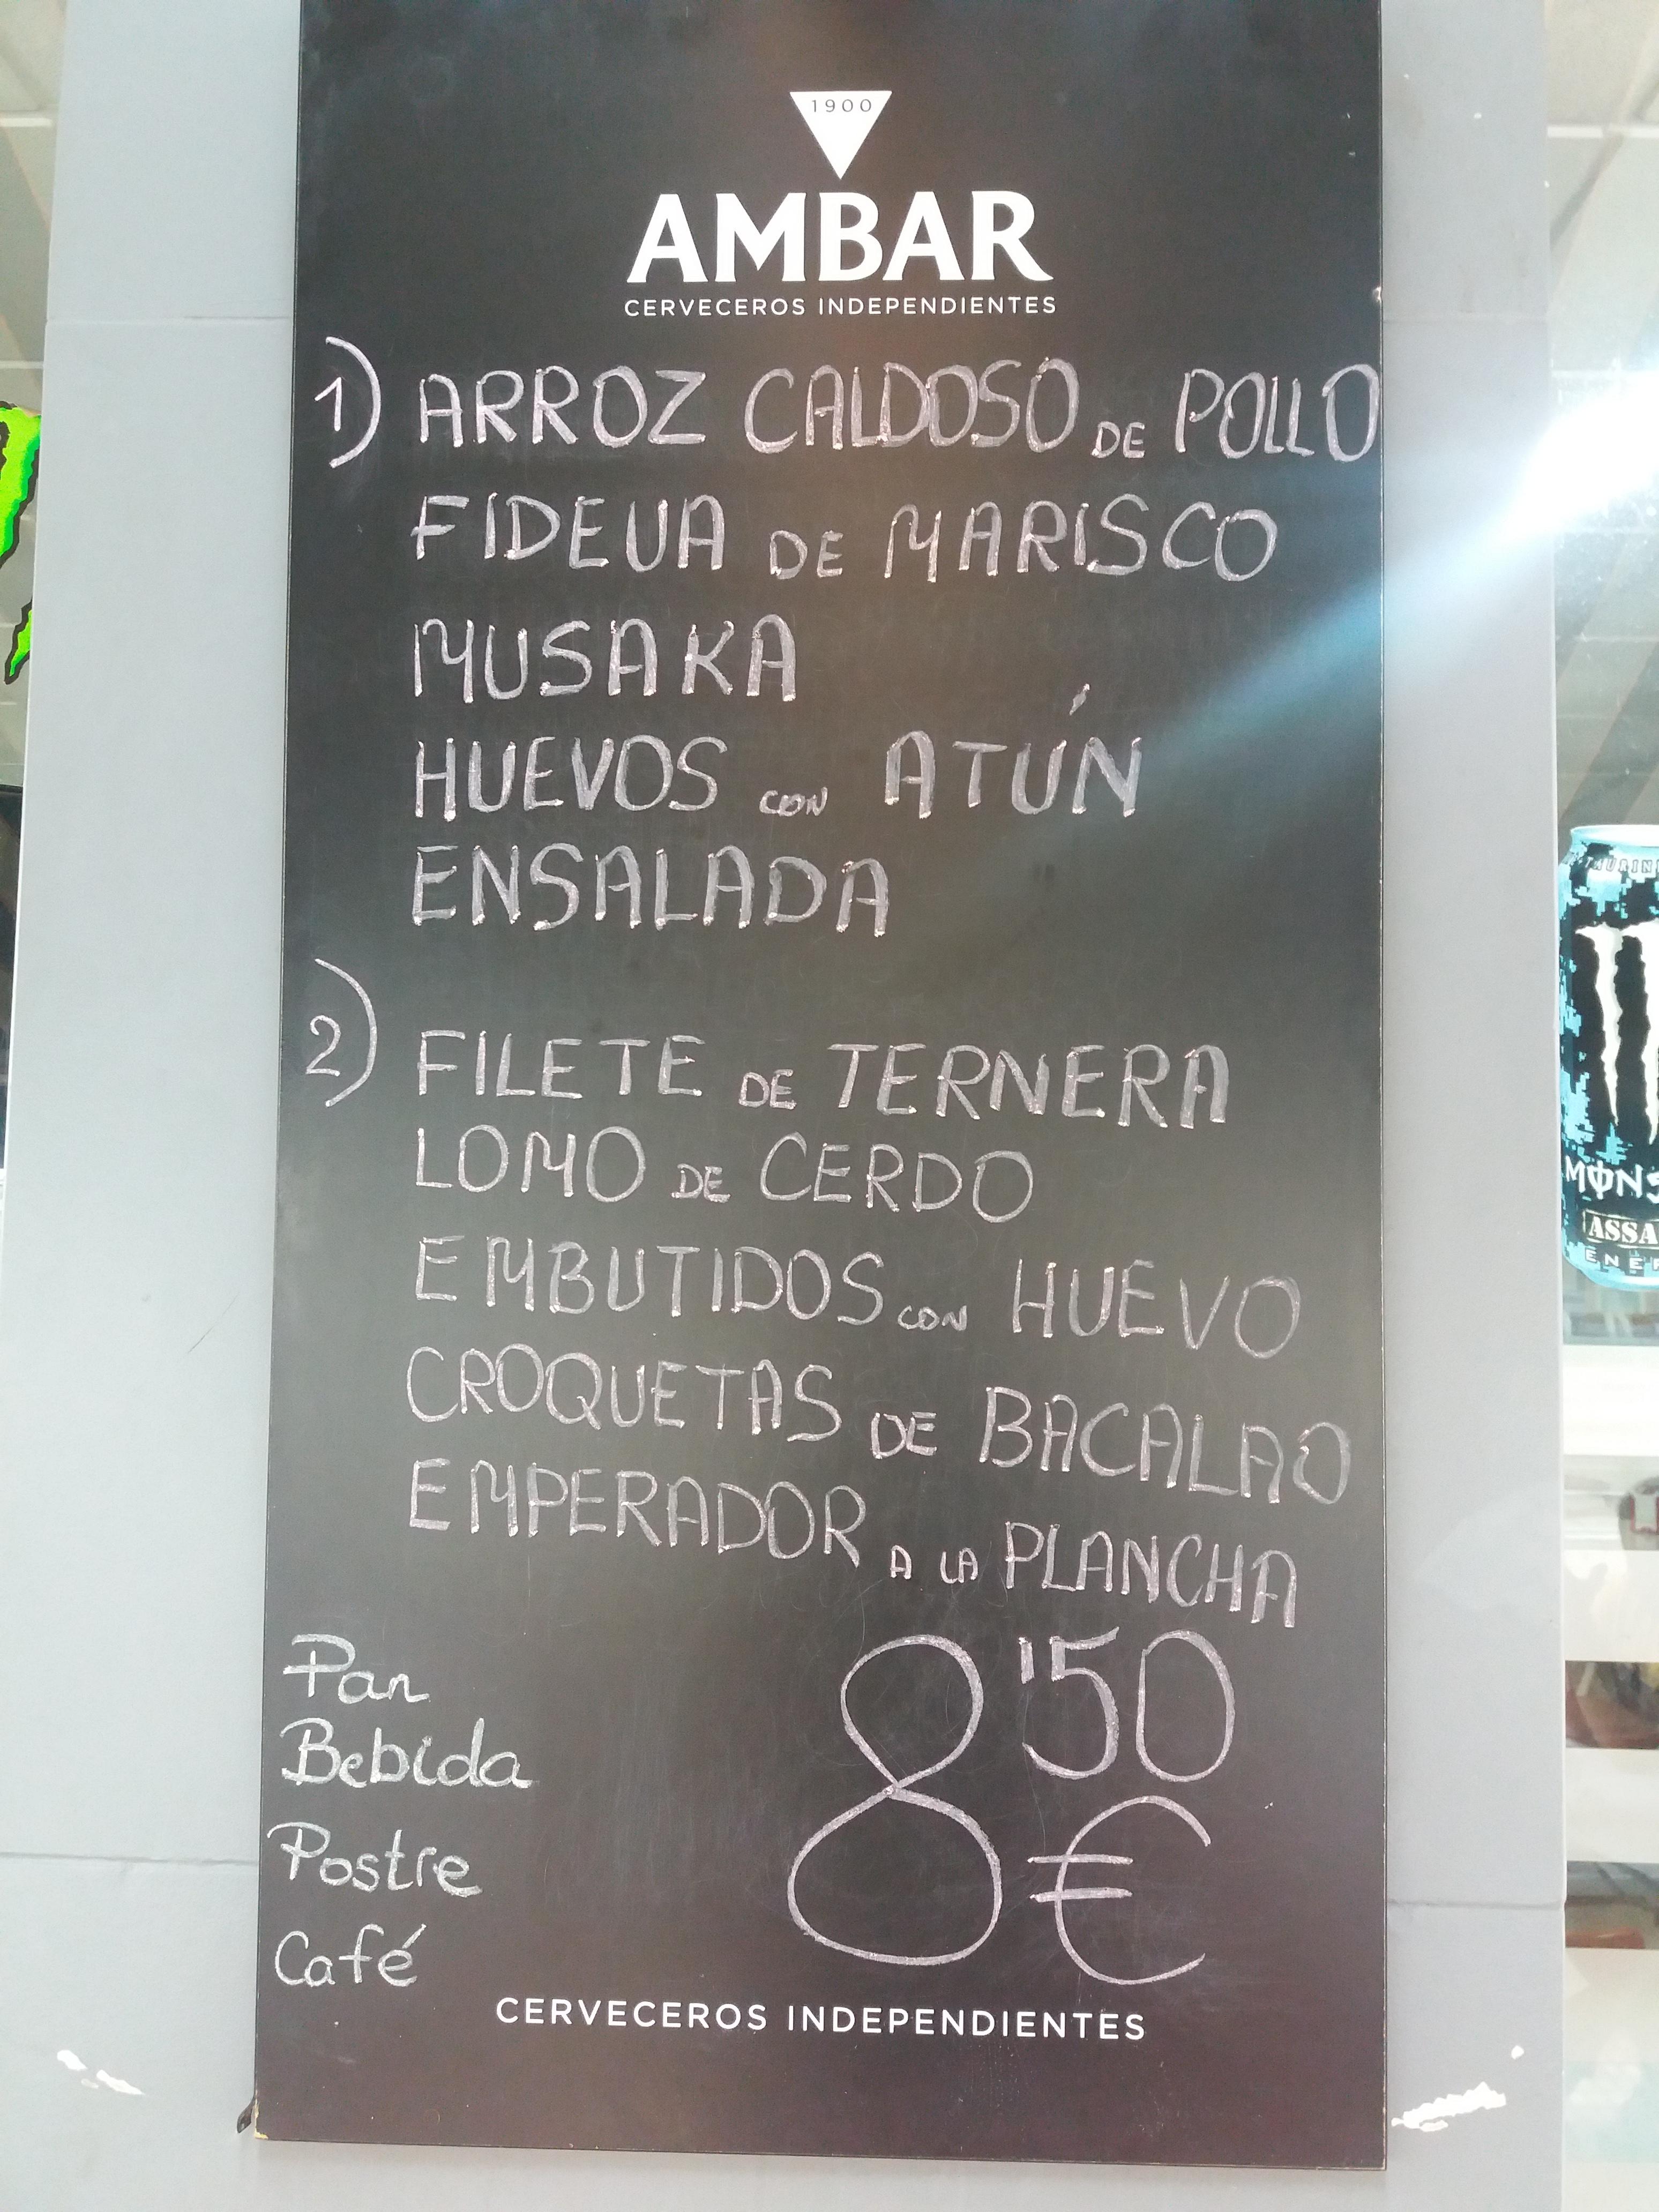 1900
AMBAR
CERVECEROS INDEPENDIENTES
1) ARROZ CALDOSO DE POLLO
FIDEUA DE MARISCO
MUSAKA
HUEVOS CON ATÚN
ENSALADA
2) FILETE DE TERNERA
LOMO DE CERDO
EMBUTIDOS CON HUEVO
CROQUETAS DE BACALAO
EMPERADOR A LA PLANCHA
Pan
Bebida
Postre
Café
8'50
€
CERVECEROS INDEPENDIENTES